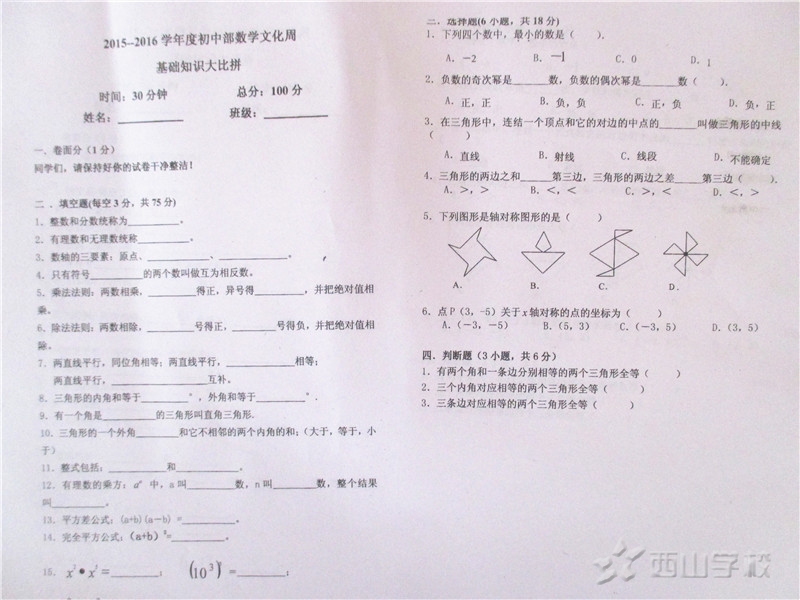 2015--2016 学年度初中部数学文化周
基础知识大比拼
时间：30 分钟 总分：100 分
姓名：__________ 班级：__________
一．卷面分（1 分）
同学们，请保持好你的试卷干净整洁！
二．填空题(每空 3 分，共 75 分)
1．整数和分数统称为________。
2．有理数和无理数统称________。
3．数轴的三要素：原点、________、________。
4．只有符号________的两个数叫做互为相反数。
5．乘法法则：两数相乘，________得正，异号得________，并把绝对值相
乘。
6．除法法则：两数相除，________号得正，________号得负，并把绝对值相
除。
7．两直线平行，同位角相等；两直线平行，________相等；
两直线平行，________互补。
8．三角形的内角和等于________°，外角和等于________°.
9．有一个角是________的三角形叫直角三角形.
10．三角形的一个外角________和它不相邻的两个内角的和；（大于，等于，小
于）
11．整式包括：________和________。
12．有理数的乘方：aⁿ 中，a 叫________数，n 叫________数，整个结果
叫________。
13．平方差公式：(a+b)(a－b) =________。
14．完全平方公式：(a+b)²=________。
二．选择题(6 小题，共 18 分)
1．下列四个数中，最小的数是（ ）．
A．－2 B．－1 C．0 D．1
2．负数的奇次幂是______数，负数的偶次幂是______数（ ）．
A．正，正 B．负，负 C．正，负 D．负，正
3．在三角形中，连结一个顶点和它的对边的中点的______叫做三角形的中线
（ ）
A．直线 B．射线 C．线段 D．不能确定
4．三角形的两边之和_____第三边，三角形的两边之差_____第三边（ ）．
A．＞，＞ B．＜，＜ C．＞，＜ D．＜，＞
5．下列图形是轴对称图形的是（ ）
A． B． C． D．
6．点 P（3，-5）关于 x 轴对称的点的坐标为（ ）
A．(－3，－5) B．(5，3) C．(－3，5) D．(3，5)
四．判断题（3 小题，共 6 分）
1．有两个角和一条边分别相等的两个三角形全等（ ）
2．三个内角对应相等的两个三角形全等（ ）
3．三条边对应相等的两个三角形全等（ ）
西山学校